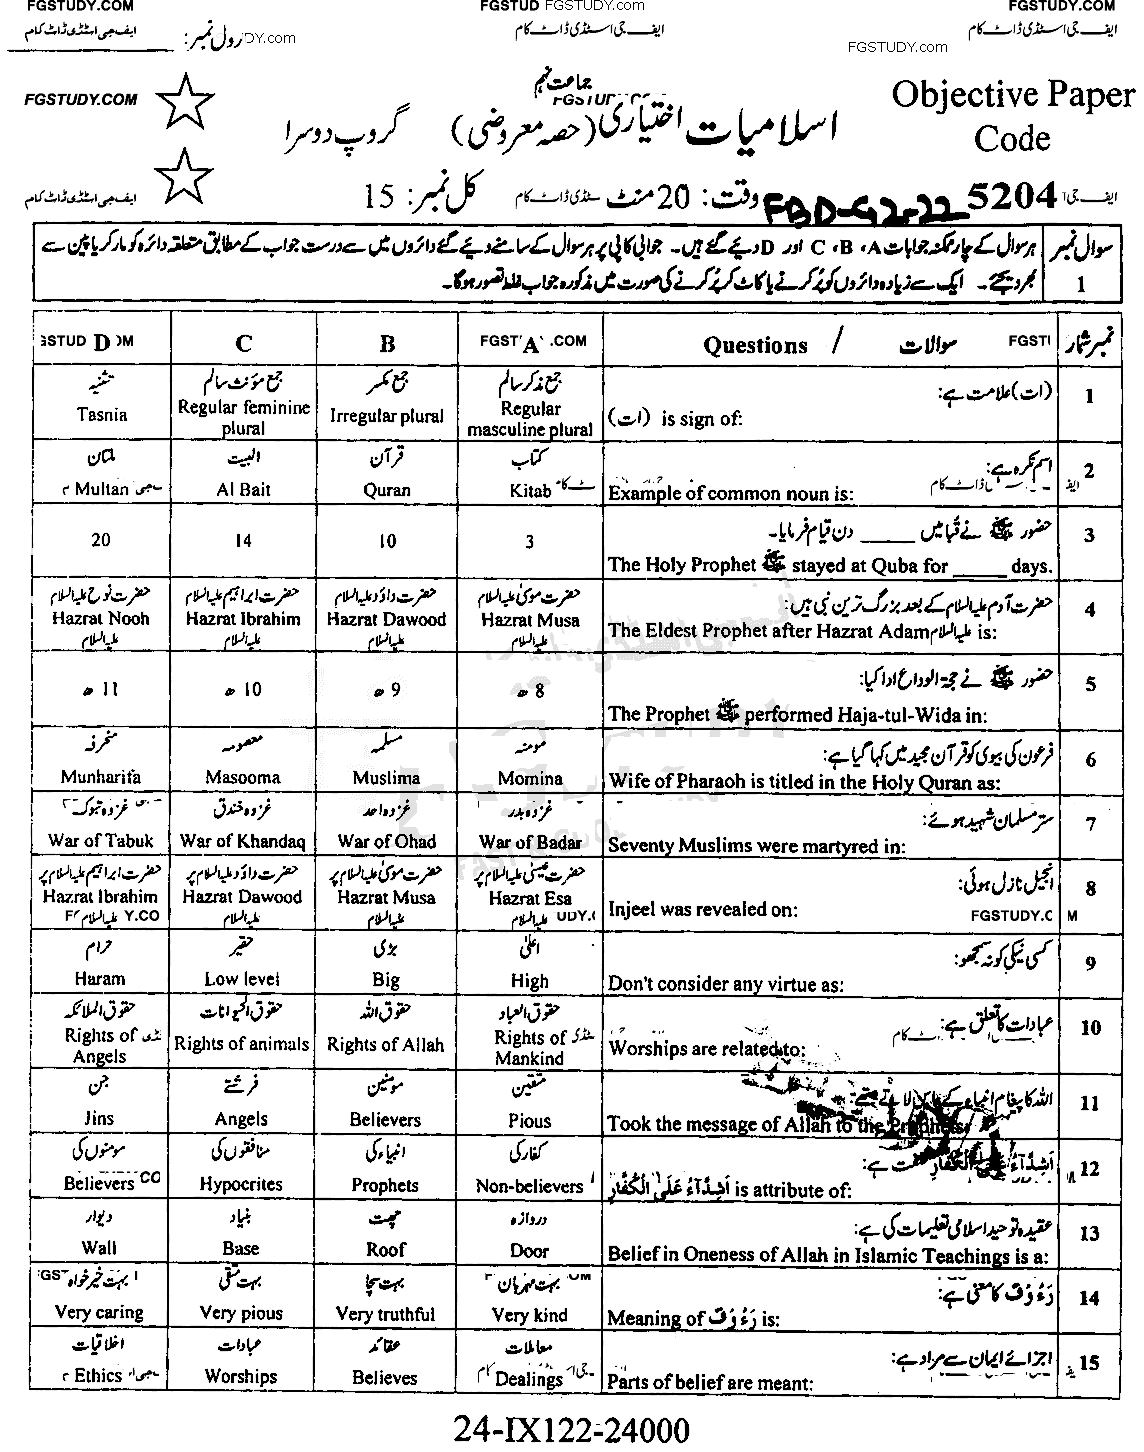 FGSTUDY.COM FGSTUD FGSTUDY.com FGSTUDY.COM
ایف جی اسٹڈی ڈاٹ کام رول نمبر: DY.com ایف جی اسٹڈی ڈاٹ کام FGSTUDY.com ایف جی اسٹڈی ڈاٹ کام
جماعت نہم
FGSTUDY.COM Objective Paper
اسلامیات اختیاری (حصہ معروضی) گروپ دوسرا Code
ایف جی اسٹڈی ڈاٹ کام کل نمبر: 15 سٹڈی ڈاٹ کام وقت: 20 منٹ FBD-G2-22 5204 ایف جی
سوال نمبر 1 ہر سوال کے چار ممکنہ جوابات A، B، C اور D دیئے گئے ہیں۔ جوابی کاپی پر ہر سوال کے سامنے دیئے گئے دائروں میں سے درست جواب کے مطابق متعلقہ دائرہ کو مارکر یا پین سے
بھر دیجئے۔ ایک سے زیادہ دائروں کو پُر کرنے یا کاٹ کر پُر کرنے کی صورت میں مذکورہ جواب غلط تصور ہوگا۔
GSTUD D OM C B FGST A .COM Questions / سوالات FGSTI نمبر شمار
تثنیہ جمع مؤنث سالم جمع مکسر جمع مذکر سالم (ات) علامت ہے: 1
Tasnia Regular feminine plural Irregular plural Regular masculine plural (ات) is sign of:
ملتان البیت قرآن کتاب اسم نکرہ ہے: 2
Multan Al Bait Quran Kitab Example of common noun is:
20 14 10 3 حضور ﷺ نے قبا میں _____ دن قیام فرمایا۔ 3
The Holy Prophet ﷺ stayed at Quba for _____ days.
حضرت نوح علیہ السلام حضرت ابراہیم علیہ السلام حضرت داؤد علیہ السلام حضرت موسیٰ علیہ السلام حضرت آدم علیہ السلام کے بعد بزرگ ترین نبی ہیں: 4
Hazrat Nooh علیہ السلام Hazrat Ibrahim علیہ السلام Hazrat Dawood علیہ السلام Hazrat Musa علیہ السلام The Eldest Prophet after Hazrat Adam علیہ السلام is:
11 ھ 10 ھ 9 ھ 8 ھ حضور ﷺ نے حجۃ الوداع ادا کیا: 5
The Prophet ﷺ performed Haja-tul-Wida in:
منحرفہ معصومہ مسلمہ مومنہ فرعون کی بیوی کو قرآن مجید میں کہا گیا ہے: 6
Munharifa Masooma Muslima Momina Wife of Pharaoh is titled in the Holy Quran as:
غزوہ تبوک غزوہ خندق غزوہ احد غزوہ بدر ستر مسلمان شہید ہوئے: 7
War of Tabuk War of Khandaq War of Ohad War of Badar Seventy Muslims were martyred in:
حضرت ابراہیم علیہ السلام پر حضرت داؤد علیہ السلام پر حضرت موسیٰ علیہ السلام پر حضرت عیسیٰ علیہ السلام پر انجیل نازل ہوئی: 8
Hazrat Ibrahim علیہ السلام Hazrat Dawood علیہ السلام Hazrat Musa علیہ السلام Hazrat Esa علیہ السلام Injeel was revealed on: FGSTUDY.C M
حرام حقیر بڑی اعلیٰ کسی نیکی کو نہ سمجھو: 9
Haram Low level Big High Don't consider any virtue as:
حقوق الملائکہ حقوق الحیوانات حقوق اللہ حقوق العباد عبادات کا تعلق ہے: 10
Rights of Angels Rights of animals Rights of Allah Rights of Mankind Worships are related to:
جن فرشتے مومنین متقین اللہ کا پیغام انبیاء کے پاس لاتے تھے: 11
Jins Angels Believers Pious Took the message of Allah to the Prophets:
مومنوں کی منافقوں کی انبیاء کی کفار کی اَشِدَّآءُ عَلَی الْکُفَّارِ صفت ہے: 12
Believers Hypocrites Prophets Non-believers اَشِدَّآءُ عَلَی الْکُفَّارِ is attribute of:
دیوار بنیاد چھت دروازہ عقیدہ توحید اسلامی تعلیمات کی ہے: 13
Wall Base Roof Door Belief in Oneness of Allah in Islamic Teachings is a:
بہت خیر خواہ بہت متقی بہت سچا بہت مہربان رَءُوْفٌ کا معنی ہے: 14
Very caring Very pious Very truthful Very kind Meaning of رَءُوْفٌ is:
اخلاقیات عبادات عقائد معاملات اجزائے ایمان سے مراد ہے: 15
Ethics Worships Believes Dealings Parts of belief are meant:
24-IX122-24000